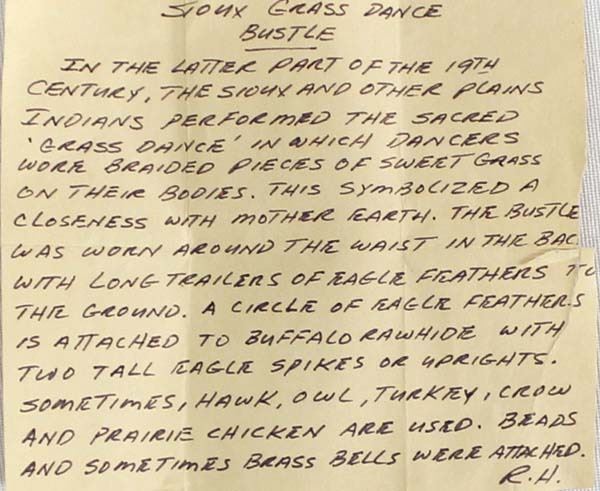 SIOUX GRASS DANCE
BUSTLE
IN THE LATTER PART OF THE 19TH
CENTURY, THE SIOUX AND OTHER PLAINS
INDIANS PERFORMED THE SACRED
'GRASS DANCE' IN WHICH DANCERS
WORE BRAIDED PIECES OF SWEET GRASS
ON THEIR BODIES. THIS SYMBOLIZED A
CLOSENESS WITH MOTHER EARTH. THE BUSTLE
WAS WORN AROUND THE WAIST IN THE BAC
WITH LONG TRAILERS OF EAGLE FEATHERS TO
THE GROUND. A CIRCLE OF EAGLE FEATHERS
IS ATTACHED TO BUFFALO RAWHIDE WITH
TWO TALL EAGLE SPIKES OR UPRIGHTS.
SOMETIMES, HAWK, OWL, TURKEY, CROW
AND PRAIRIE CHICKEN ARE USED. BEADS
AND SOMETIMES BRASS BELLS WERE ATTACHED.
R.H.